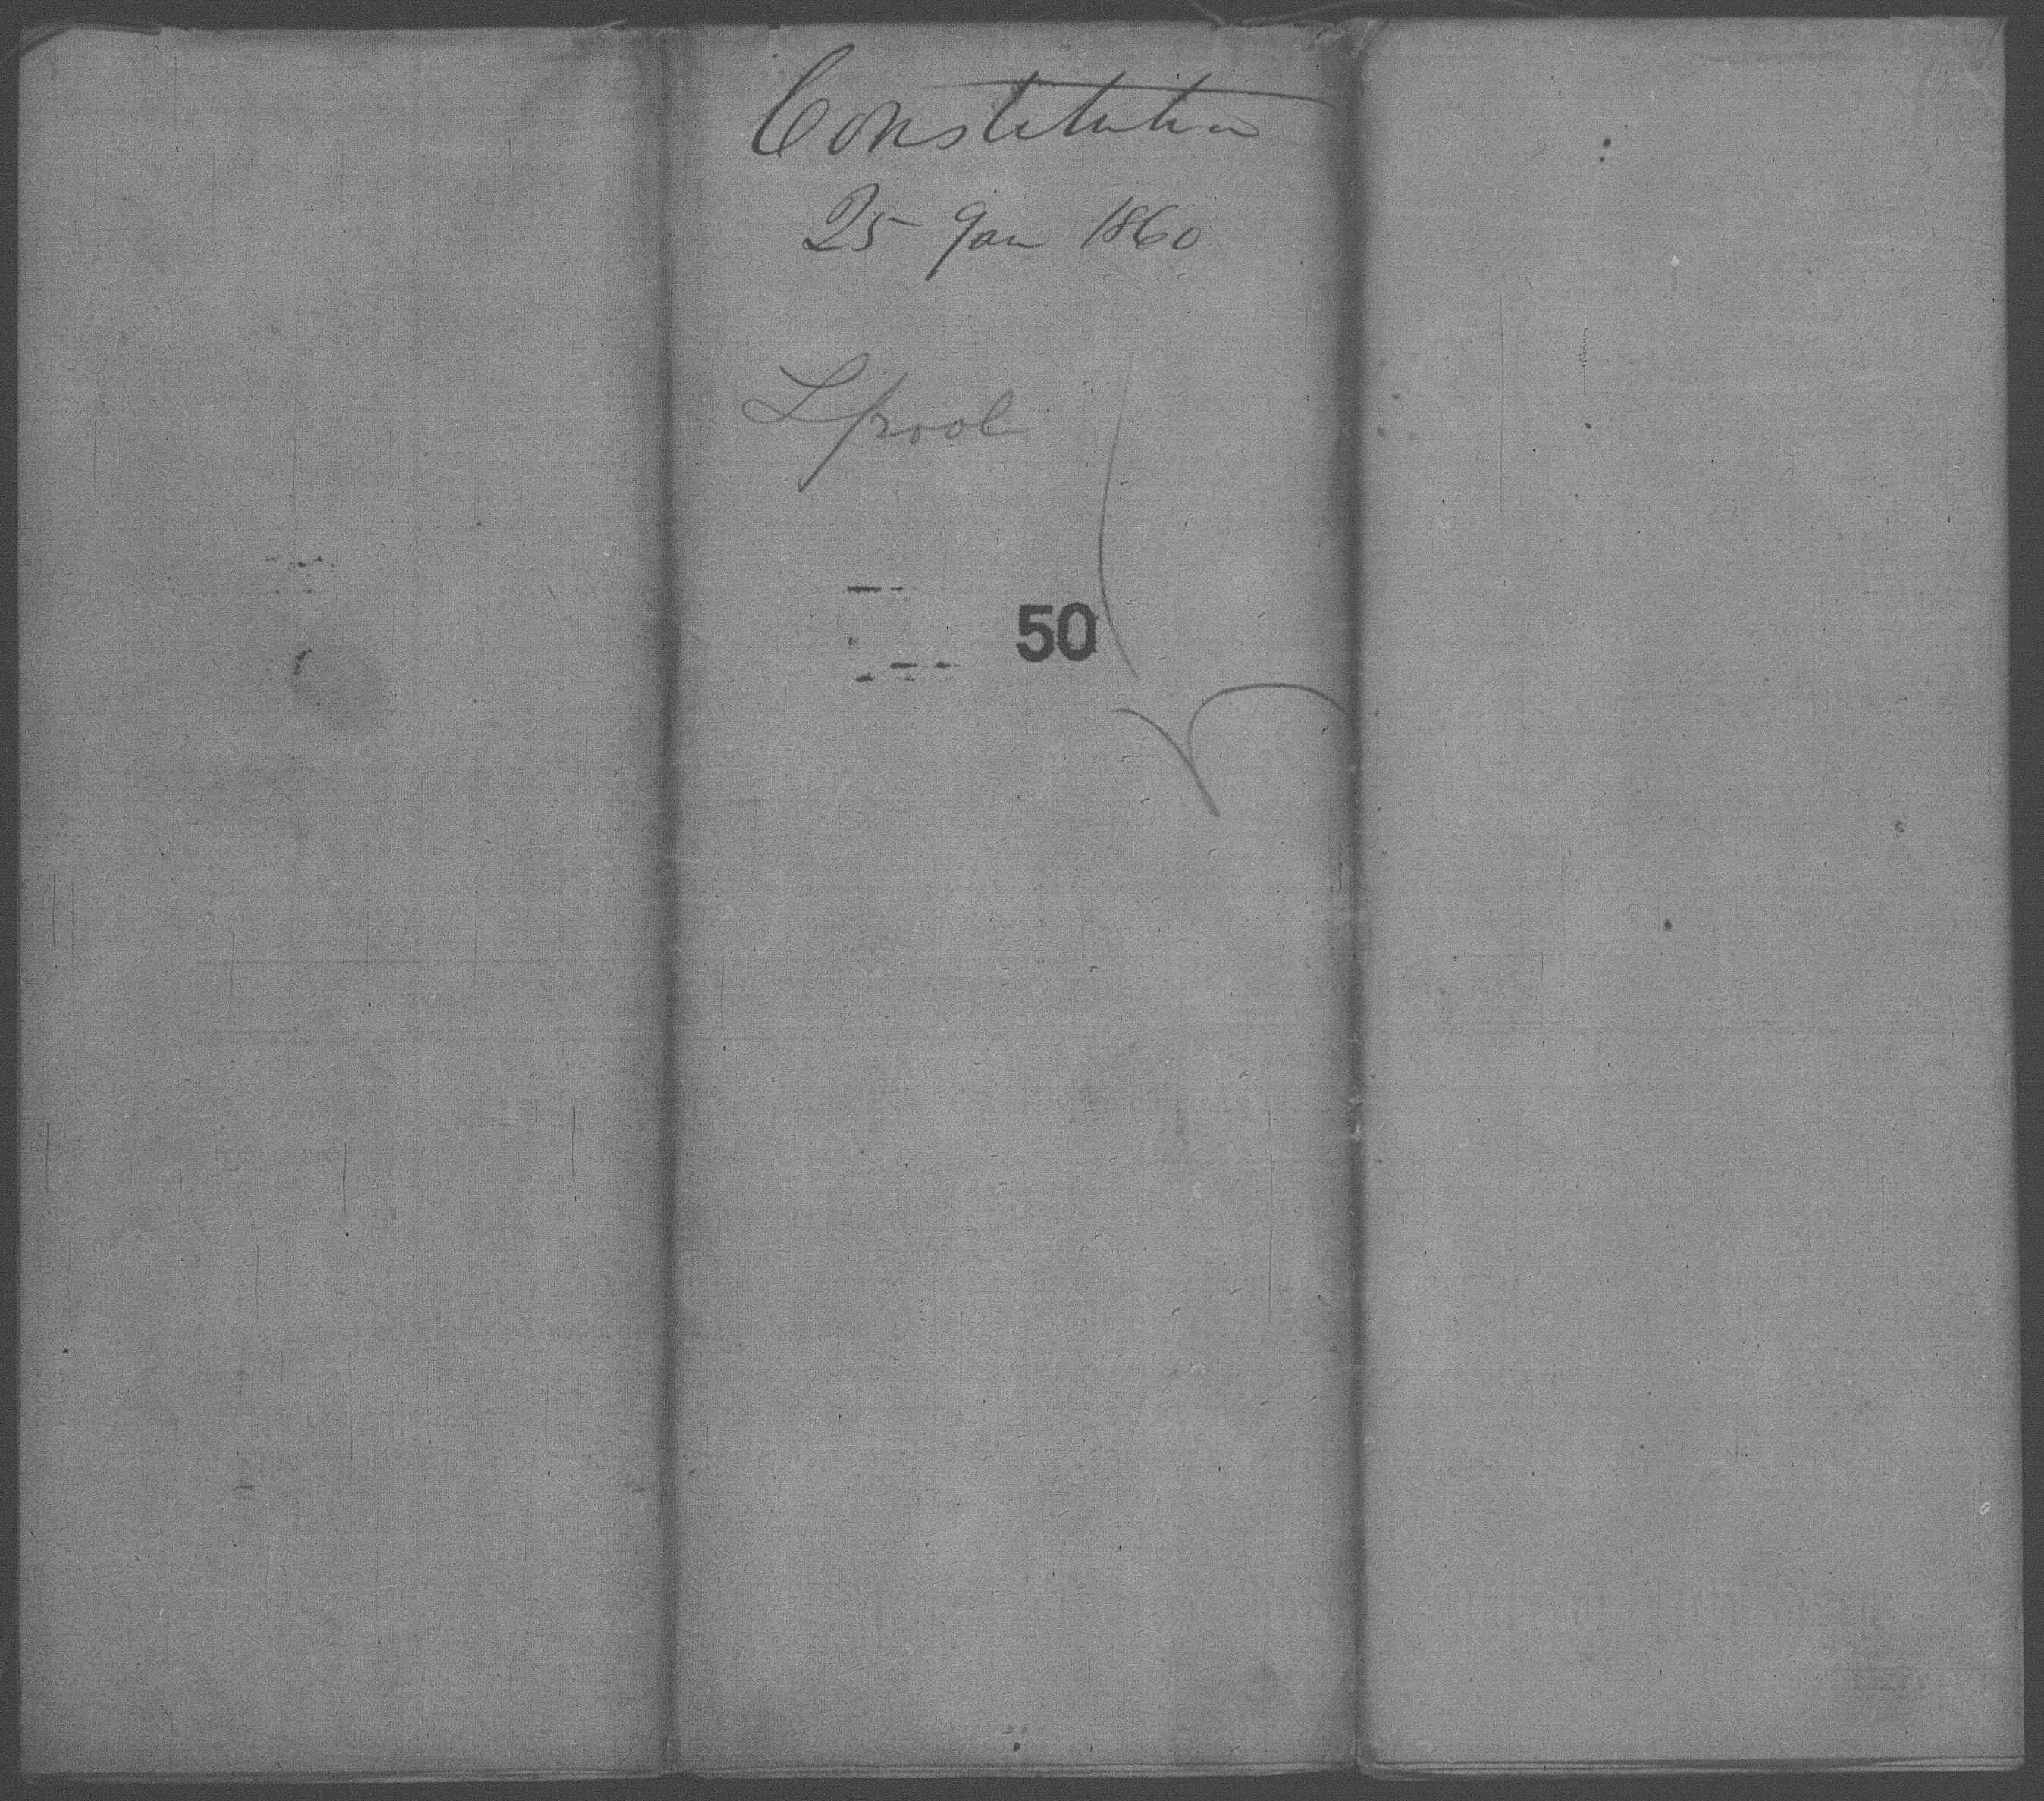 Constitution
25 Jan 1860
Lpool
50